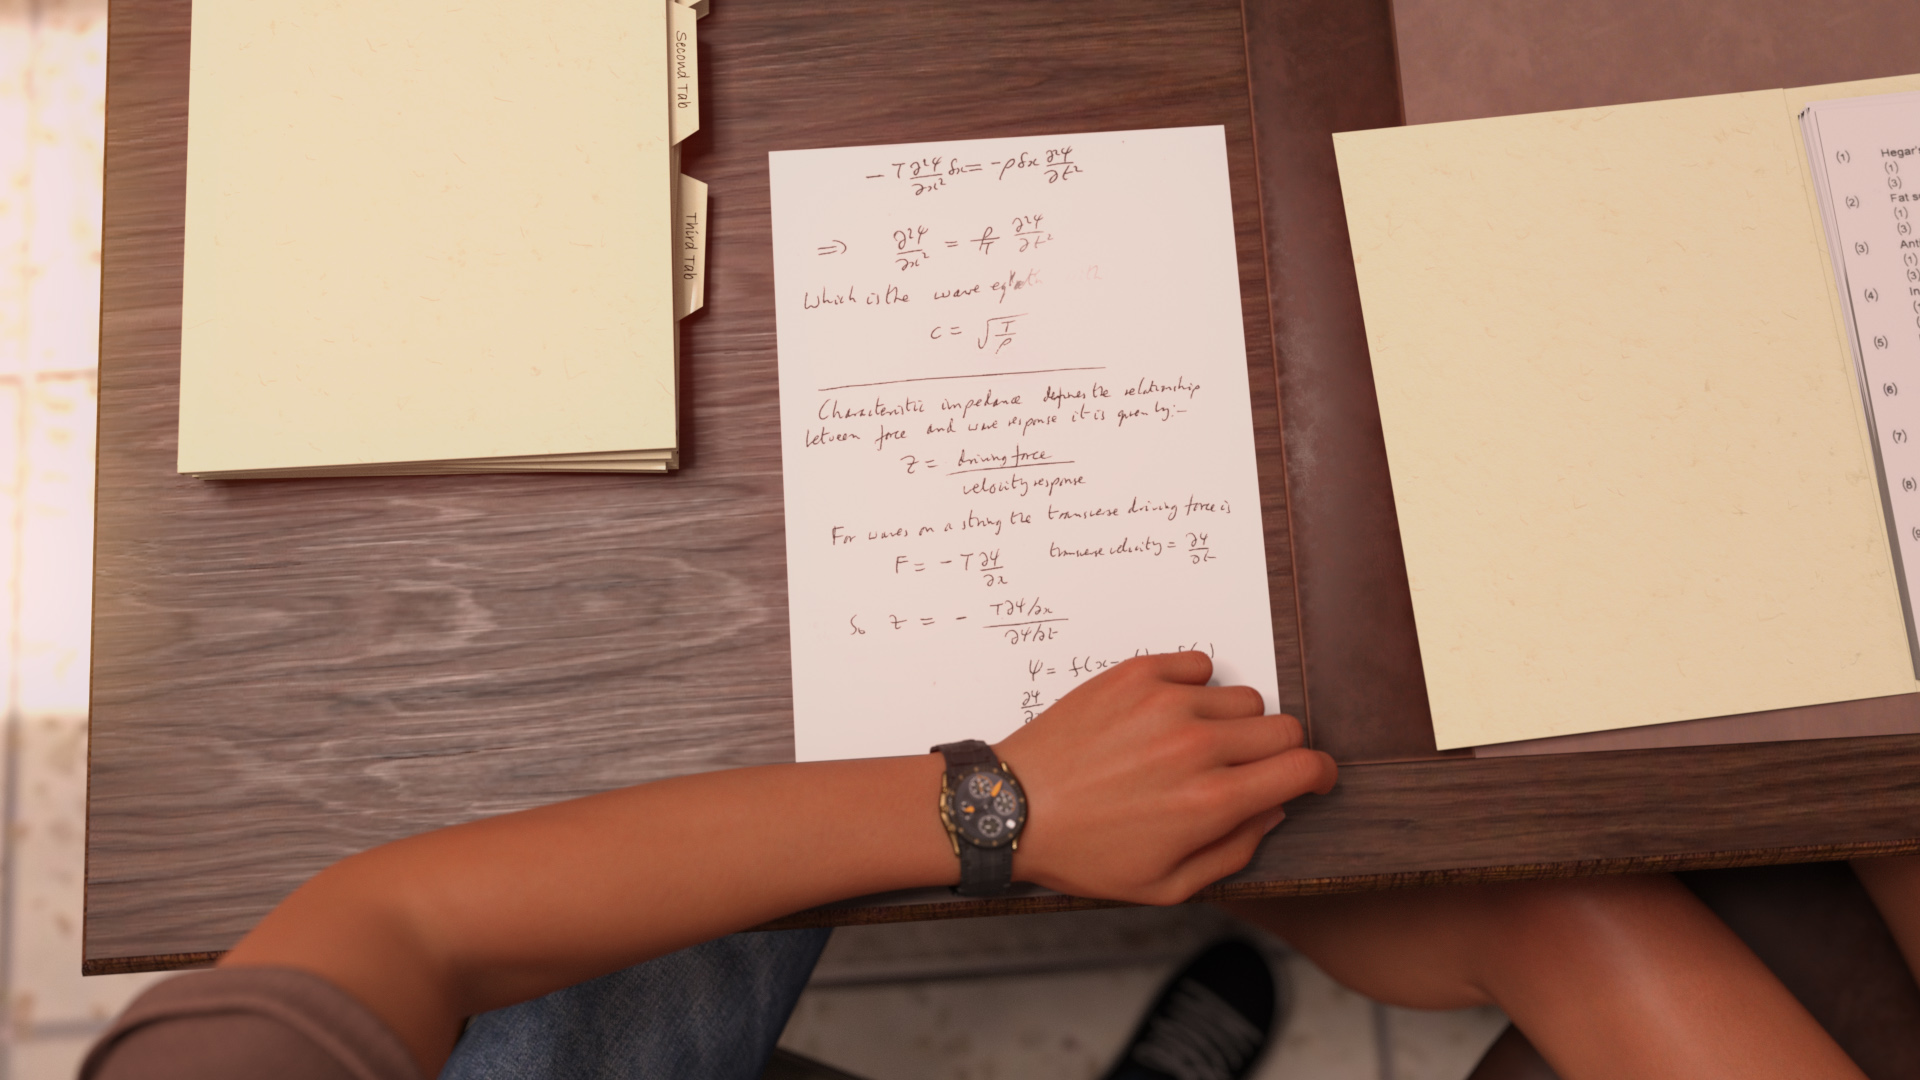 Second Tab
Third Tab
- T ∂²ψ/∂x² δx = - ρ δx ∂²ψ/∂t²
⇒ ∂²ψ/∂x² = ρ/T ∂²ψ/∂t²
Which is the wave
c = √(T/ρ)
Characteristic impedance defines the relationship
between force and wave response it is given by:-
Z = driving force / velocity response
For waves on a string the transverse driving force is
F = - T ∂ψ/∂x transverse velocity = ∂ψ/∂t
So Z = - T∂ψ/∂x / ∂ψ/∂t
ψ = f(x-
∂ψ
(1) Hegar's
(1)
(3)
(2) Fat s
(1)
(3)
(3) Ant
(1)
(3)
(4) In
(5)
(6)
(7)
(8)